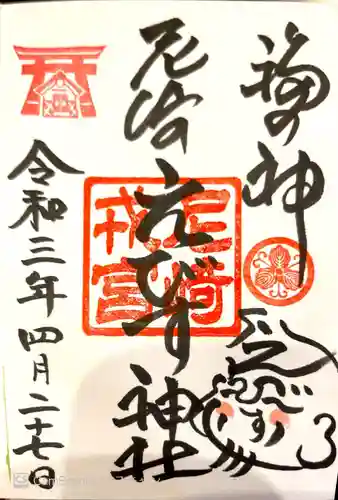 福の神
尼崎えびす神社
尼崎戎宮
令和三年四月二十七日